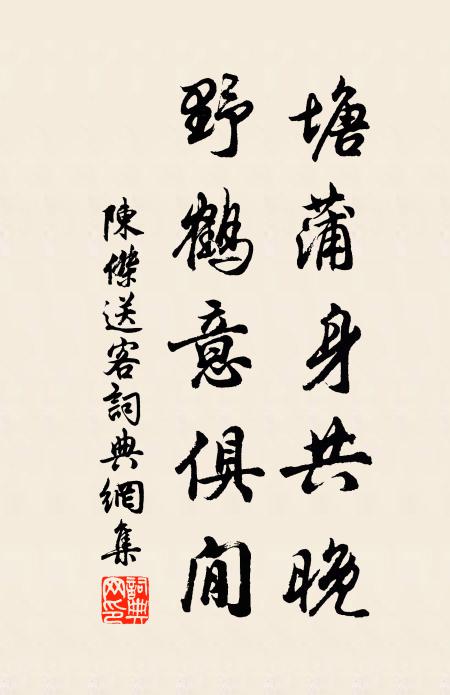 塘蒲身共晚
野鶴意俱閒
陳傑送客詞典網集
詞典网印